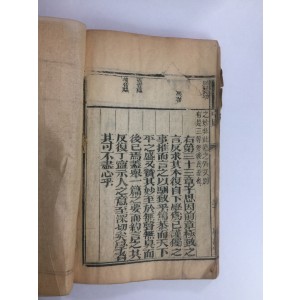 右第三十三章子思因前章極致之
言反求其本復自下學爲己謹獨之
事推而言之以馴致乎篤恭而天下
平之盛又贊其妙至於無聲無臭而
後已焉蓋舉一篇之要而約言之其
反復丁寧示人之意至深切矣學者
其可不盡心乎